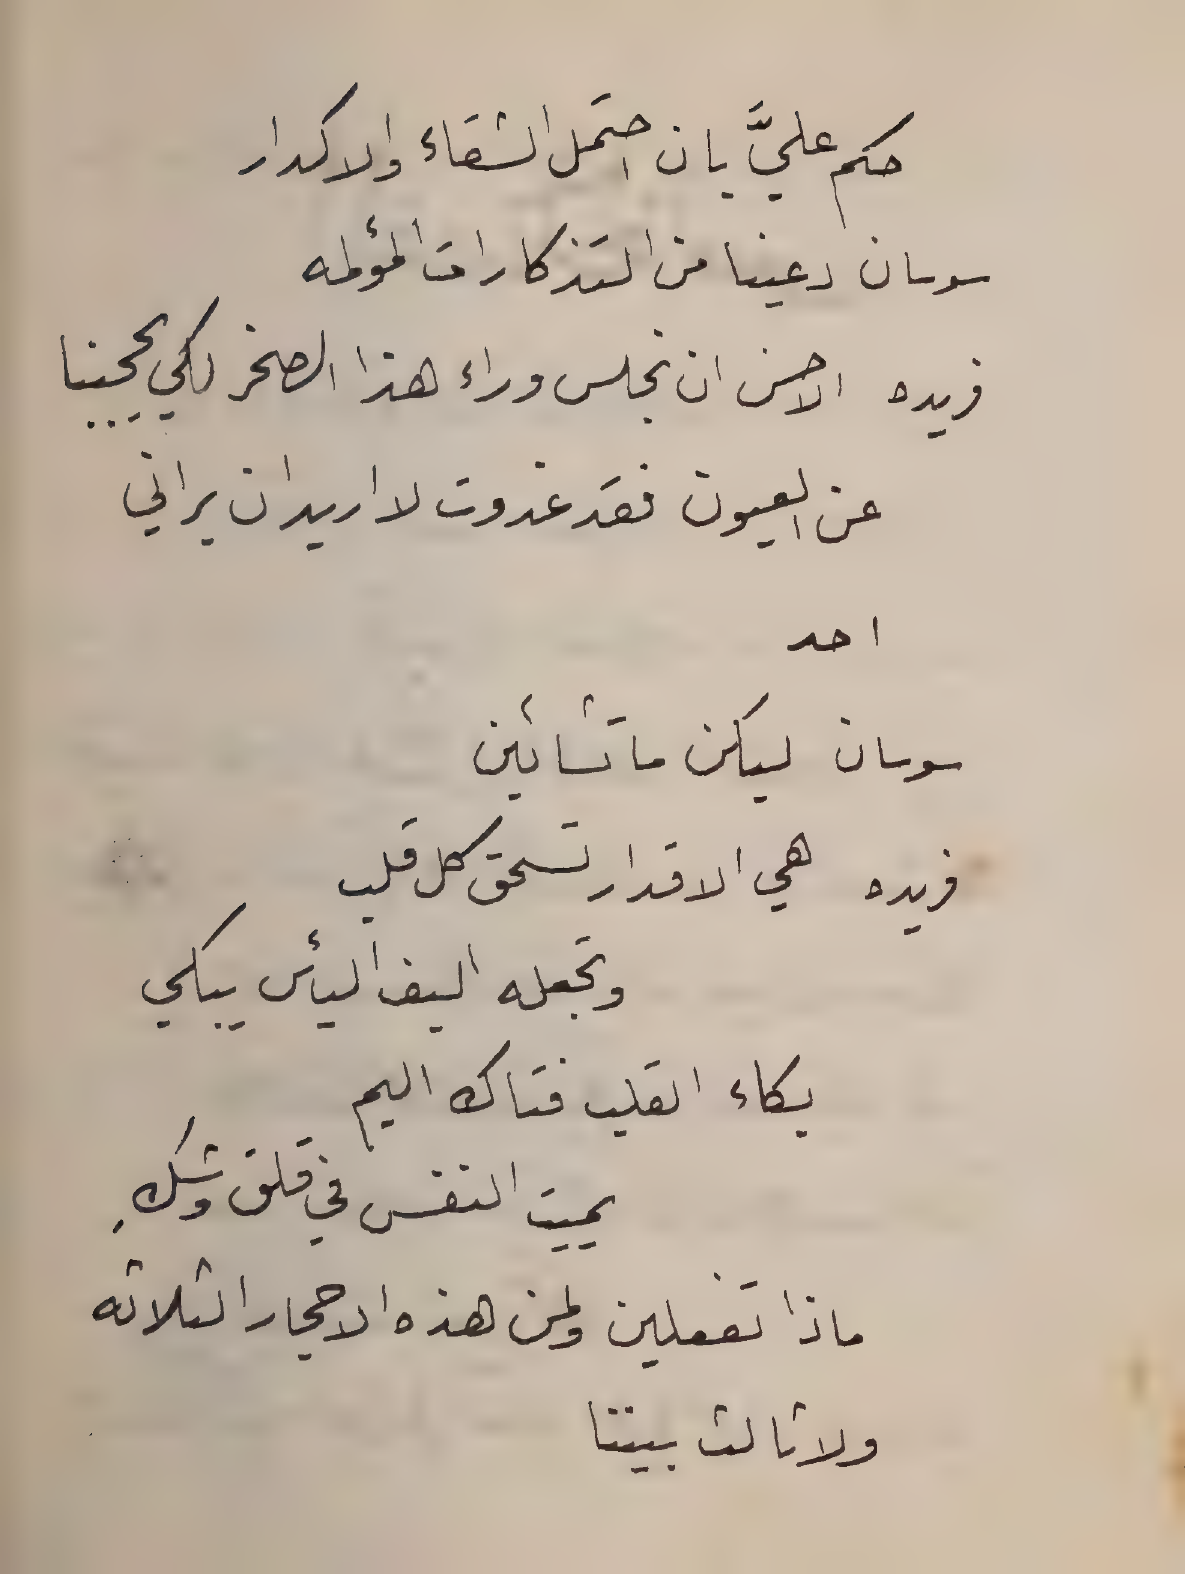 حكم عليَّ بان احتمل الشقاء والاكدار
سوسان دعينا من التذكارات المؤلمه
فريده الاحسن ان نجلس وراء هذا الصخر لكي يحجبنا
عن العيون فقد غدوت لا اريد ان يراني
احد
سوسان ليكن ما تشائين
فريده هي الاقدار تسحق كل قلب
وتجعله اليف اليأس يبكي
بكاء القلب فتاك اليم
يميت النفس في قلق وشكِ
ماذا تفعلين ولمن هذه الاحجار الثلاثه
ولا ثالث بيننا